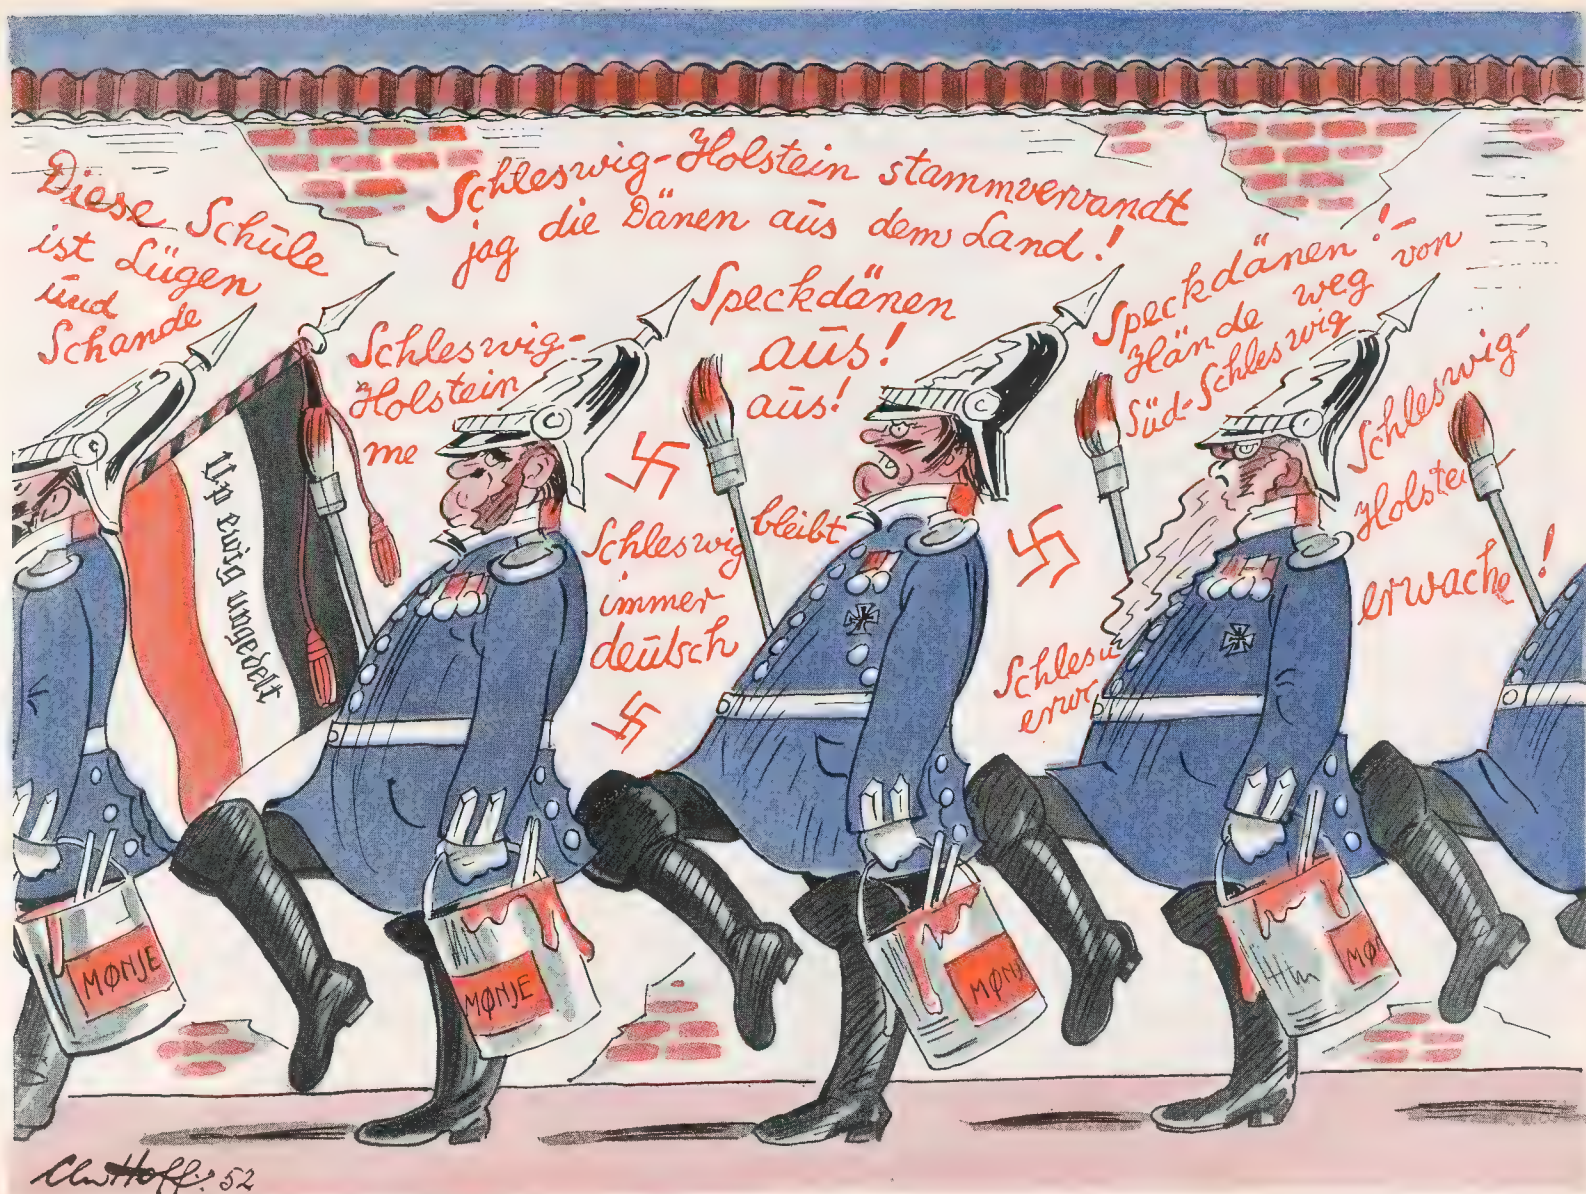 Diese Schule
ist Lügen
und
Schande
Schleswig-Holstein stammvervandt
jag die Dänen aus dem Land!
Schleswig-
Holstein
me
Speckdänen
aus!
aus!
Speckdänen!-
Hände weg von
Süd-Schleswig
Schleswig-
Holstei
erwache!
Up ewig ungedelt
Schleswig bleibt
immer
deutsch
Schlesw
erwa
MØNJE
MØNJE
MØNJ
MØ
Chr Hoff. 52